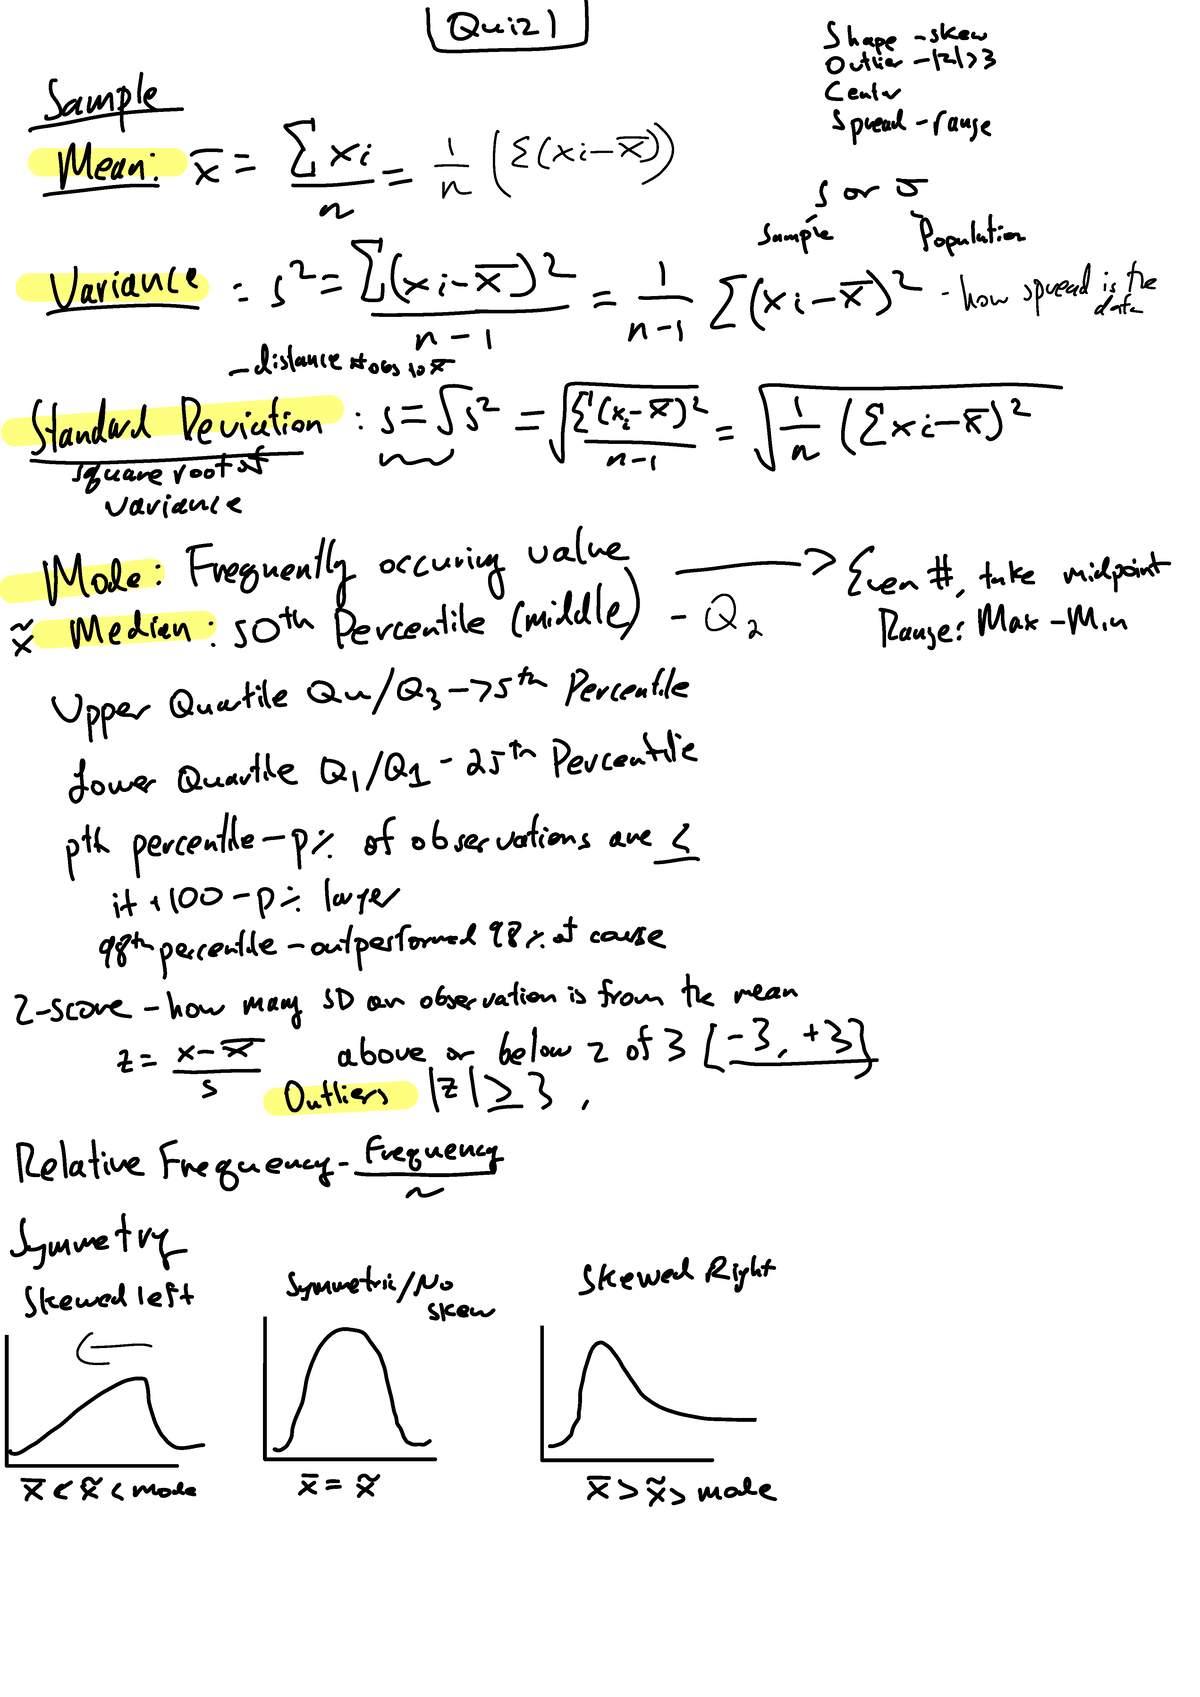 Quiz 1
Shape - skew
Outlier - |z| > 3
Center
Spread - range
Sample
Mean: x̅ = ∑xi / n = 1/n (Σ(xi - x̅))
s or σ
Sample Population
Variance : s² = ∑(xi - x̅)² / n - 1 = 1/n-1 ∑(xi - x̅)² - how spread is the data
- distance # obs to x̅
Standard Deviation : s = √s² = √Σ(xi - x̅)² / n-1 = √1/n (Σxi - x̅)²
square root of
variance
Mode: Frequently occuring value
x̃ Median: 50th Percentile (middle) - Q2 → Even #, take midpoint
Range: Max - Min
Upper Quartile Qu/Q3 → 75th Percentile
Lower Quartile Q1/Q1 - 25th Percentile
pth percentile - p% of observations are <
it + 100 - p% larger
98th percentile - outperformed 98% of
Z-score - how many SD an observation is from the mean
z = x - x̅ / s above or below z of 3 [-3, +3]
Outliers |z| ≥ 3,
Relative Frequency - Frequency / n
Symmetry
Skewed left Symmetric/No skew Skewed Right
x̅ < x̃ < mode x̅ = x̃ x̅ > x̃ > mode